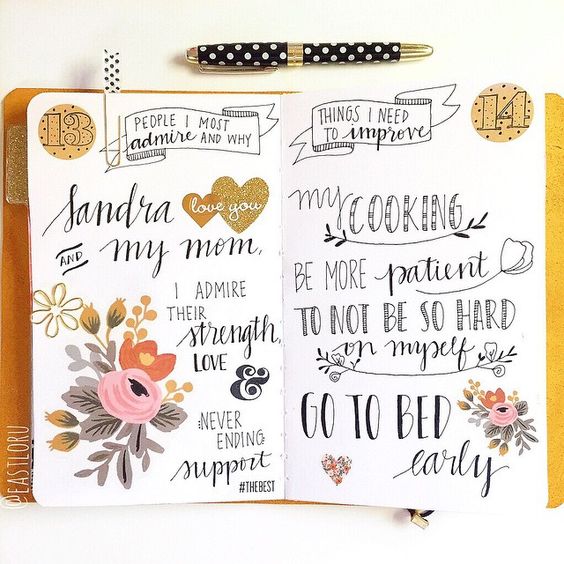 13
PEOPLE I MOST
admire AND WHY
Sandra
love you
AND my mom,
I ADMIRE
THEIR
strength,
LOVE &
:NEVER
ENDING:
support
#THEBEST
14
THINGS I NEED
TO improve
my COOKING
BE MORE patient
TO NOT BE SO HARD
on myself
GO TO BED
early
@EASTLORU